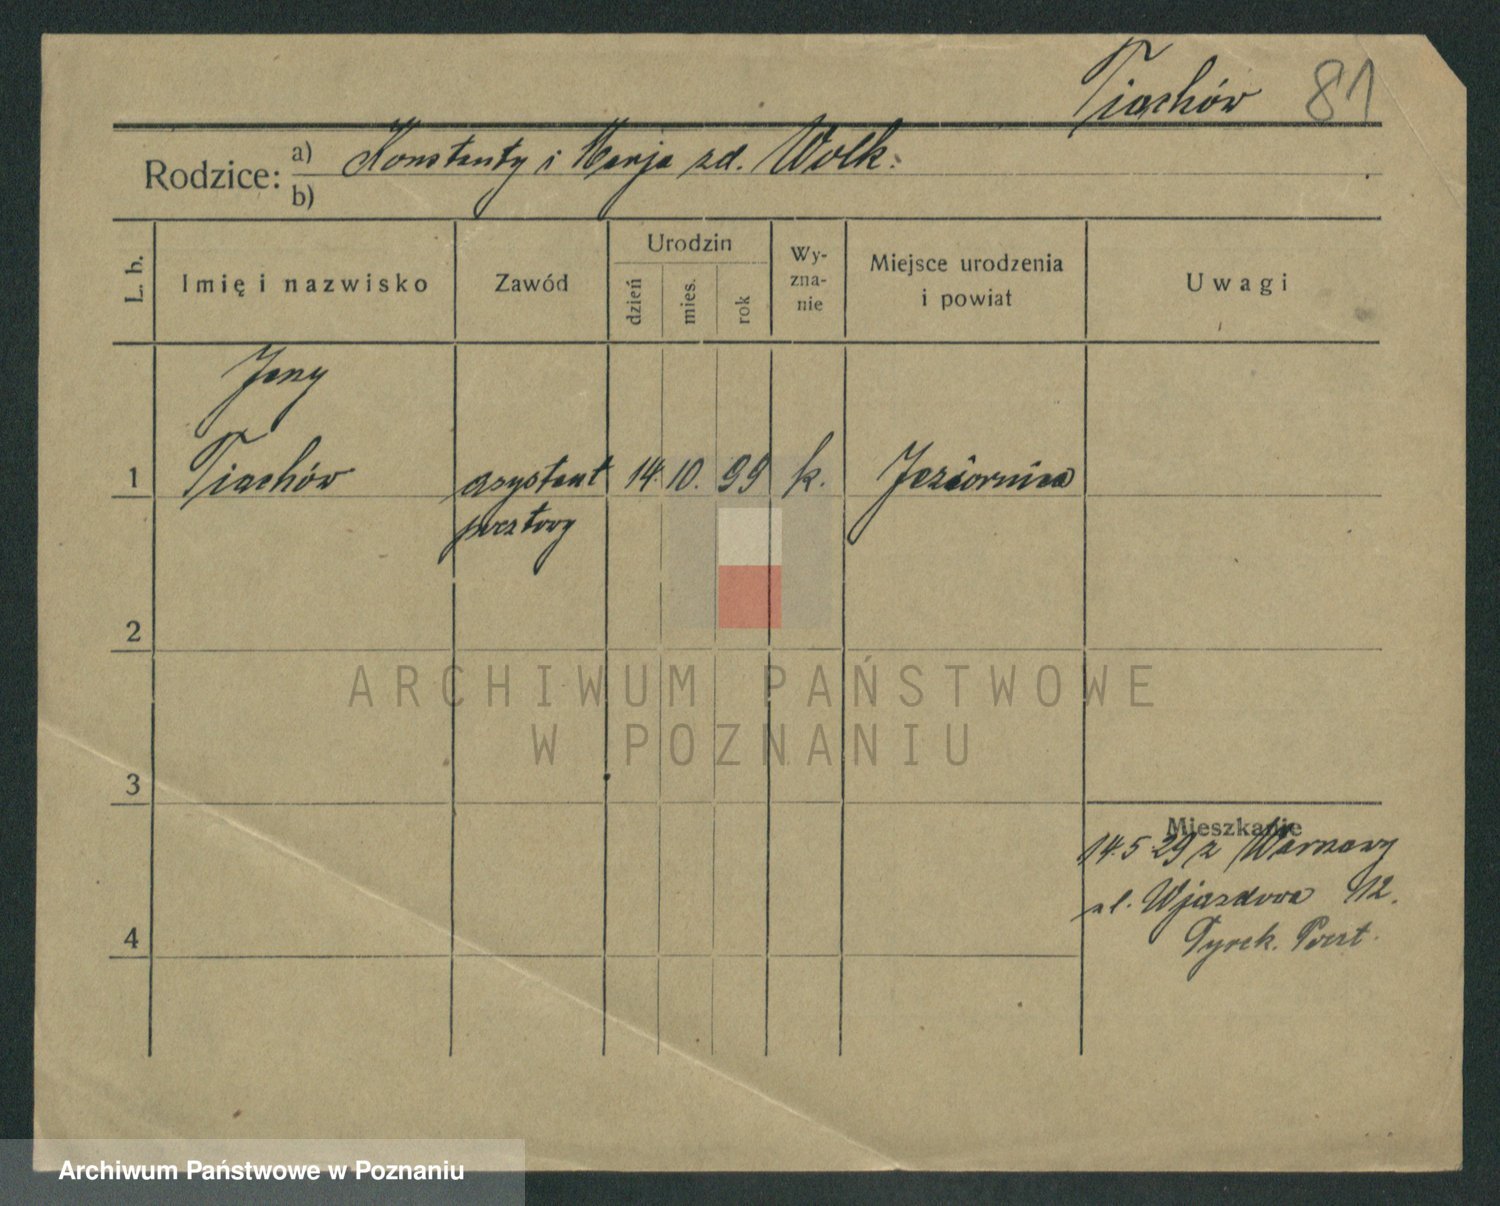 Tiachów 81
Rodzice: a) Konstanty i Marja zd. Wolk.
b)
L. b.
Imię i nazwisko
Zawód
Urodzin
dzień
mies.
rok
Wy-
zna-
nie
Miejsce urodzenia
i powiat
Uwagi
Jerzy
1 Tiachów asystent 14. 10. 99 k. Jeziornica
pocztowy
2
ARCHIWUM PAŃSTWOWE
W POZNANIU
3
Mieszkanie
14.5 29 z Warszawy
ul. Wjazdowa 12.
4
Dyrek. Poczt.
Archiwum Państwowe w Poznaniu